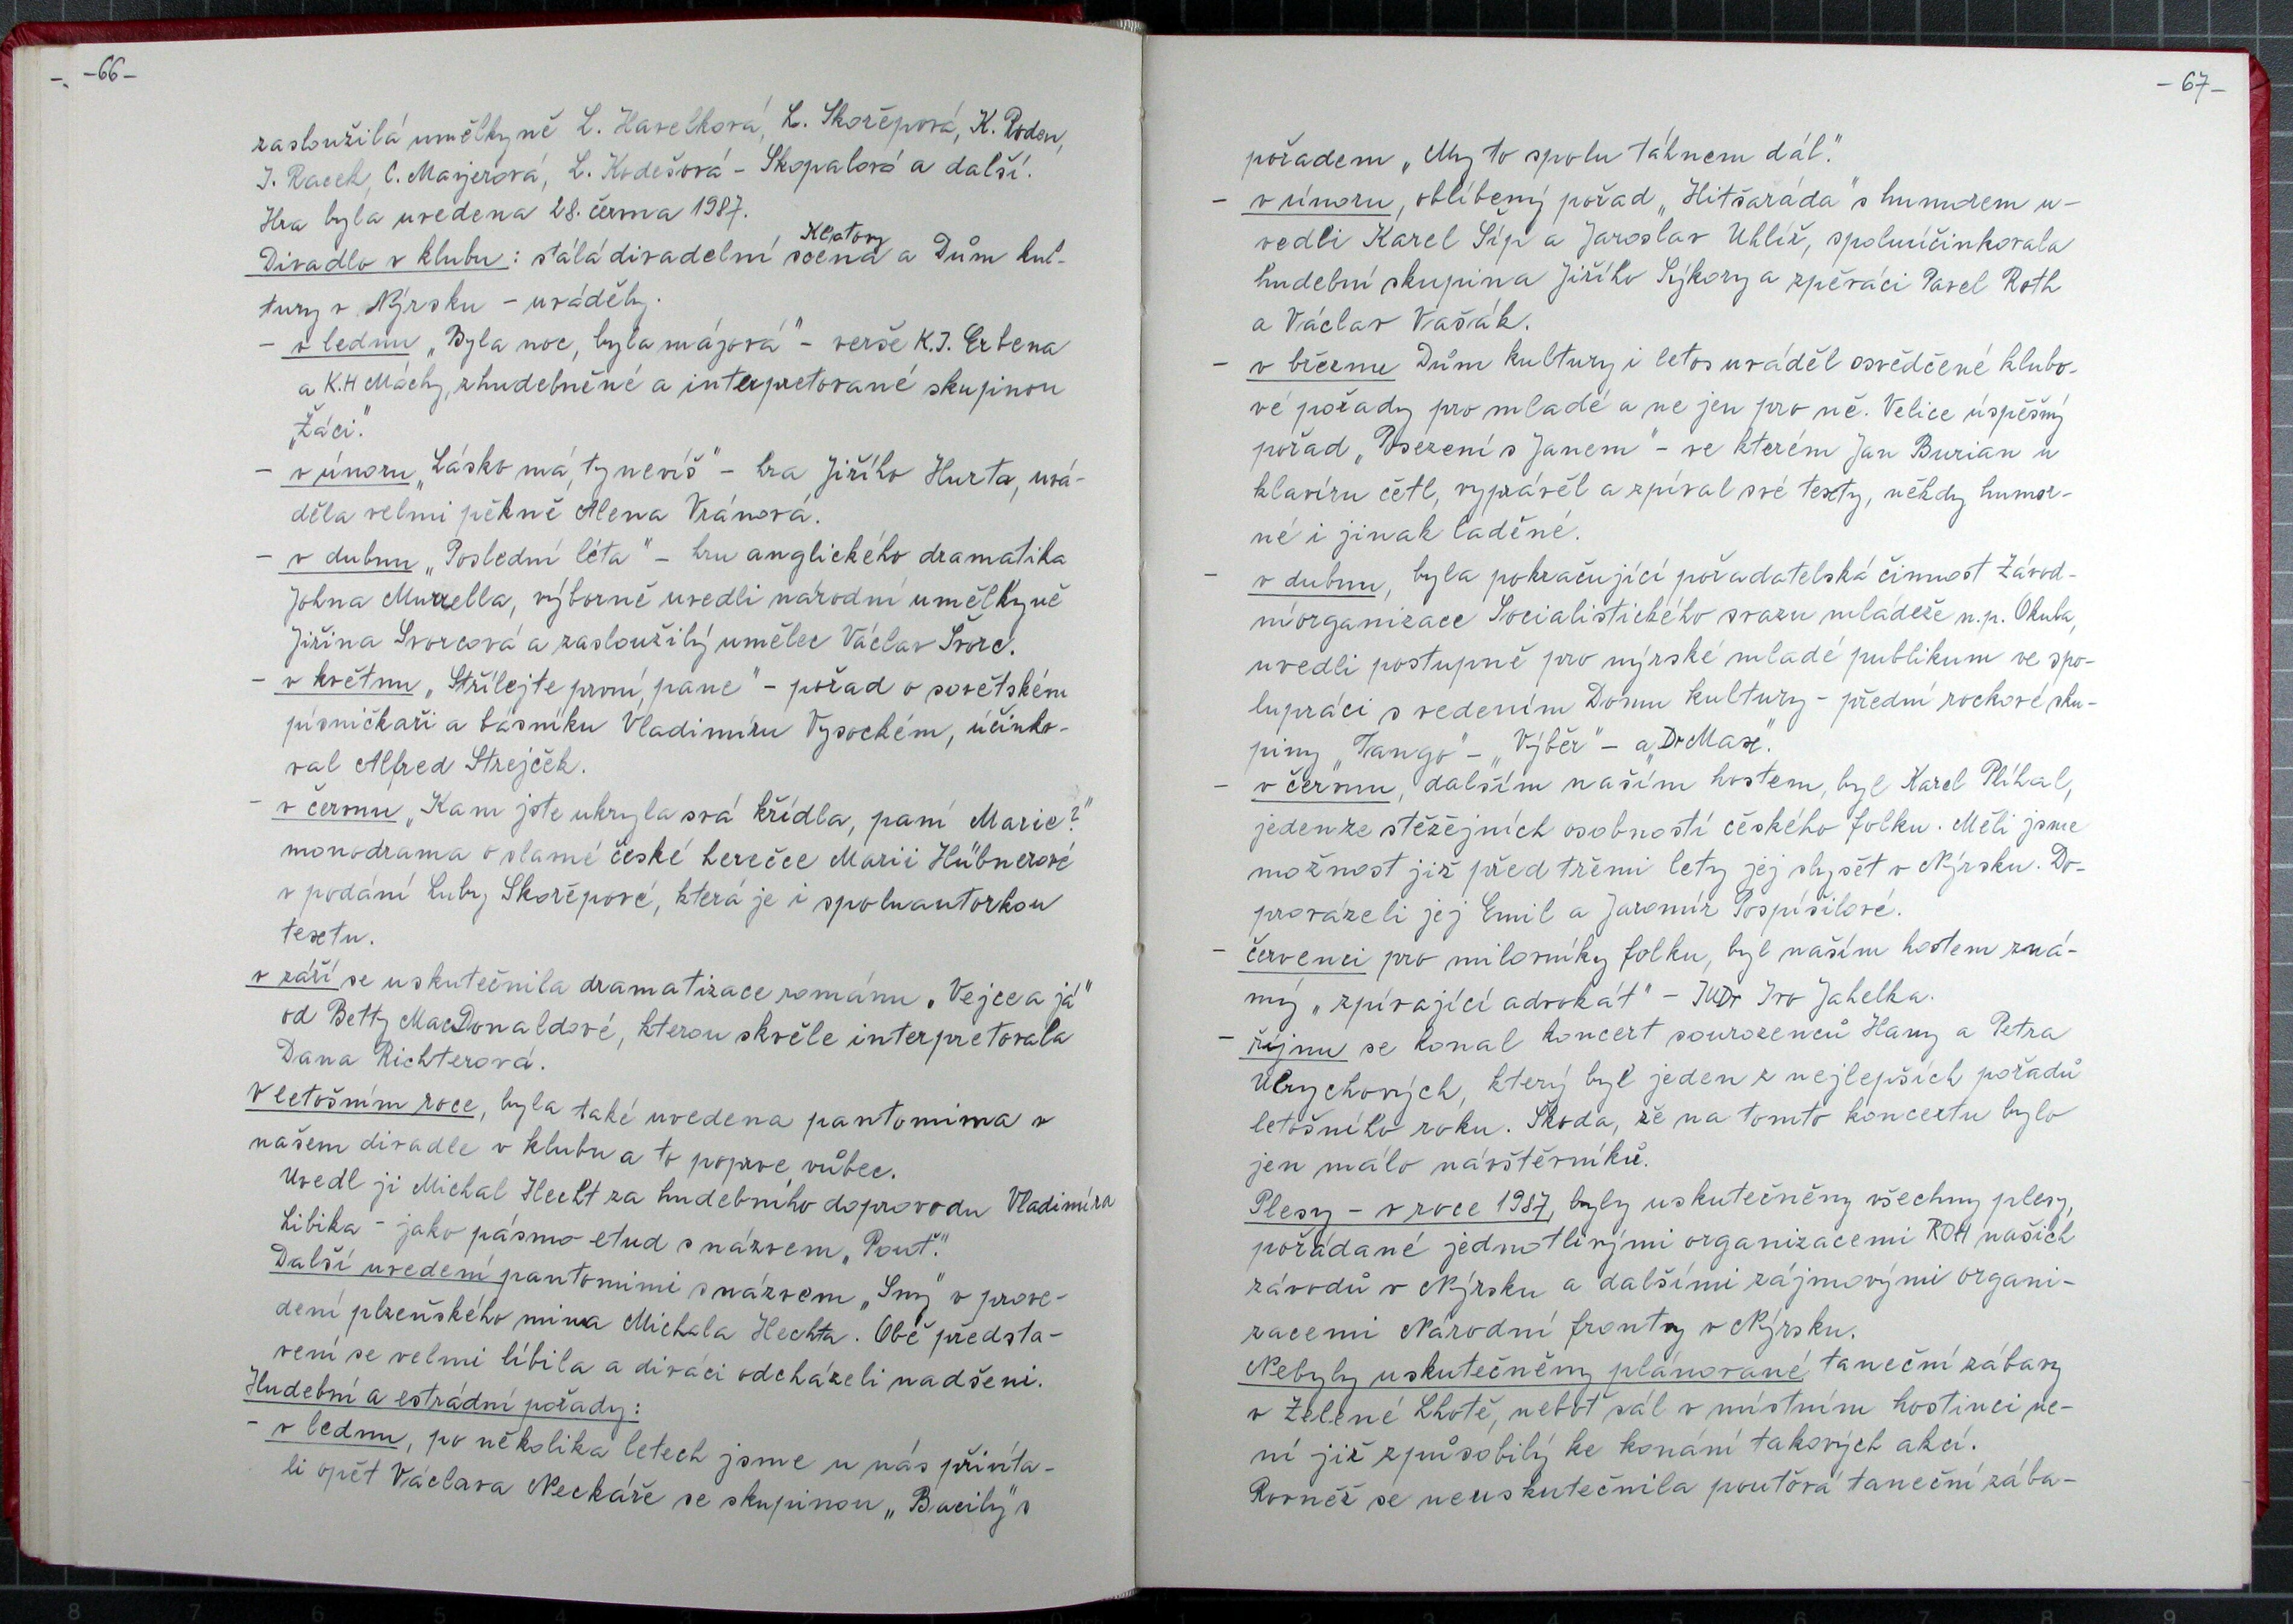 -66-
zasloužilá umělkyně L. Havelková, L. Skořepová, K. Roden,
J. Racek, C. Mayerová, L. Kodešová - Skopalová a další.
Hra byla uvedena 28. června 1987.
Klatovy
Divadlo v klubu: stálá divadelní scéna a Dům kul-
tury v Nýrsku - uváděly.
- v lednu „Byla noc, byla májová" - verše K.J. Erbena
a K.H Máchy, zhudebněné a interpretované skupinou
„Žáci."
- v únoru „Lásko má, ty nevíš" - hra Jiřího Hurta, uvá-
děla velmi pěkně Alena Vránová.
- v dubnu „Poslední léta" - hru anglického dramatika
Johna Murrella, výborně uvedli národní umělkyně
Jiřina Svorcová a zasloužilý umělec Václav Švorc.
- v květnu „Střílejte první, pane" - pořad o sovětském
písničkaři a básníku Vladimíru Vysockém, účinko-
val Alfred Strejček.
- v červnu „Kam jste ukryla svá křídla, paní Marie?"
monodrama o slamé české herečce Marii Hübnerové
v podání Luby Skořepové, která je i spoluautorkou
textu.
v září se uskutečnila dramatizace románu „Vejce a já"
od Betty MacDonaldové, kterou skvěle interpretovala
Dana Richterová.
V letošním roce, byla také uvedena pantomima v
našem divadle v klubu a to poprve vůbec.
Uvedl ji Michal Hecht za hudebního doprovodu Vladimíra
Libika - jako pásmo etud s názvem „Pouť."
Další uvedení pantomimi s názvem „Sny" v prove-
dení plzeňského mima Michala Hechta. Obě předsta-
vení se velmi líbila a diváci odcházeli nadšeni.
Hudební a estrádní pořady:
- v lednu, po několika letech jsme u nás přivíta-
li opět Václava Neckáře se skupinou „Bacily" s
-67-
pořadem „My to spolu táhnem dál."
- v únoru, oblíbený pořad „Hitšaráda" s humorem u-
vedli Karel Šíp a Jaroslav Uhlíř, spoluúčinkovala
hudební skupina Jiřího Sýkory a zpěváci Pavel Roth
a Václav Vašák.
- v březnu Dům kultury i letos uváděl osvědčené klubo-
vé pořady pro mladé a ne jen pro ně. Velice úspěšný
pořad „Posezení s Janem" - ve kterém Jan Burian u
klavíru četl, vyprávěl a zpíval své texty, někdy humor-
né i jinak laděné.
- v dubnu, byla pokračující pořadatelská činnost Závod-
níorganizace Socialistického svazu mládeže n.p. Okula,
uvedli postupně pro nýrské mladé publikum ve spo-
lupráci s vedením Domu kultury - přední rockové sku-
piny „Tango" - „Výběr" - a „Dr Max".
- v červnu, dalším naším hostem, byl Karel Plíhal,
jeden ze stěžejních osobností českého folku. Měli jsme
možnost již před třemi lety jej slyšět v Nýrsku. Do-
provázeli jej Emil a Jaromír Pospíšilové.
- červenci pro milovníky folku, byl naším hostem zná-
mý „zpívající advokát" - JUDr Ivo Jahelka.
- říjnu se konal koncert sourozenců Hany a Petra
Ulrychových, který byl jeden z nejlepších pořadů
letošního roku. Škoda, že na tomto koncertu bylo
jen málo návštěvníků.
Plesy - v roce 1987, byly uskutečněny všechny plesy,
pořádané jednotlivými organizacemi ROH našich
závodů v Nýrsku a dalšími zájmovými organi-
zacemi Národní fronty v Nýrsku.
Nebyly uskutečněny plánované taneční zábavy
v Zelené Lhotě, neboť sál v místním hostinci ne-
ní již způsobilý ke konání takových akcí.
Rovněž se neuskutečnila pouťová taneční zába-